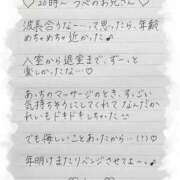 ♡20時〜 つべのお兄さん♡
波長合うなーーって思ったら、年齢
めちゃめちゃ近かった♪
入室から退室まで、ずーっと
楽しかったな…♡
あっちのマッサージのとき、すっごい
気持ち辛そうにしてくれてなんだか
れいもドキドキしちゃった♡
でも悔しいことあったから…(!)♡
年明けまたリベンジさせてよー♪